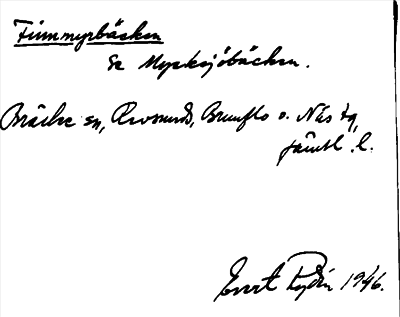 Finnmyrbäcken
Se Myrksjöbäcken.
Bräcke sn, Revsunds, Brunflo o. Näs tg,
Jämtl. l.
Evert Rydén 1946.